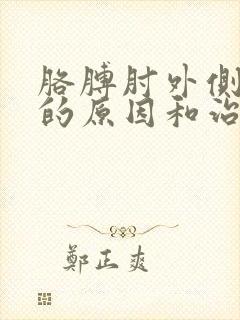 胳膊肘外侧
的原因和治
郑正爽